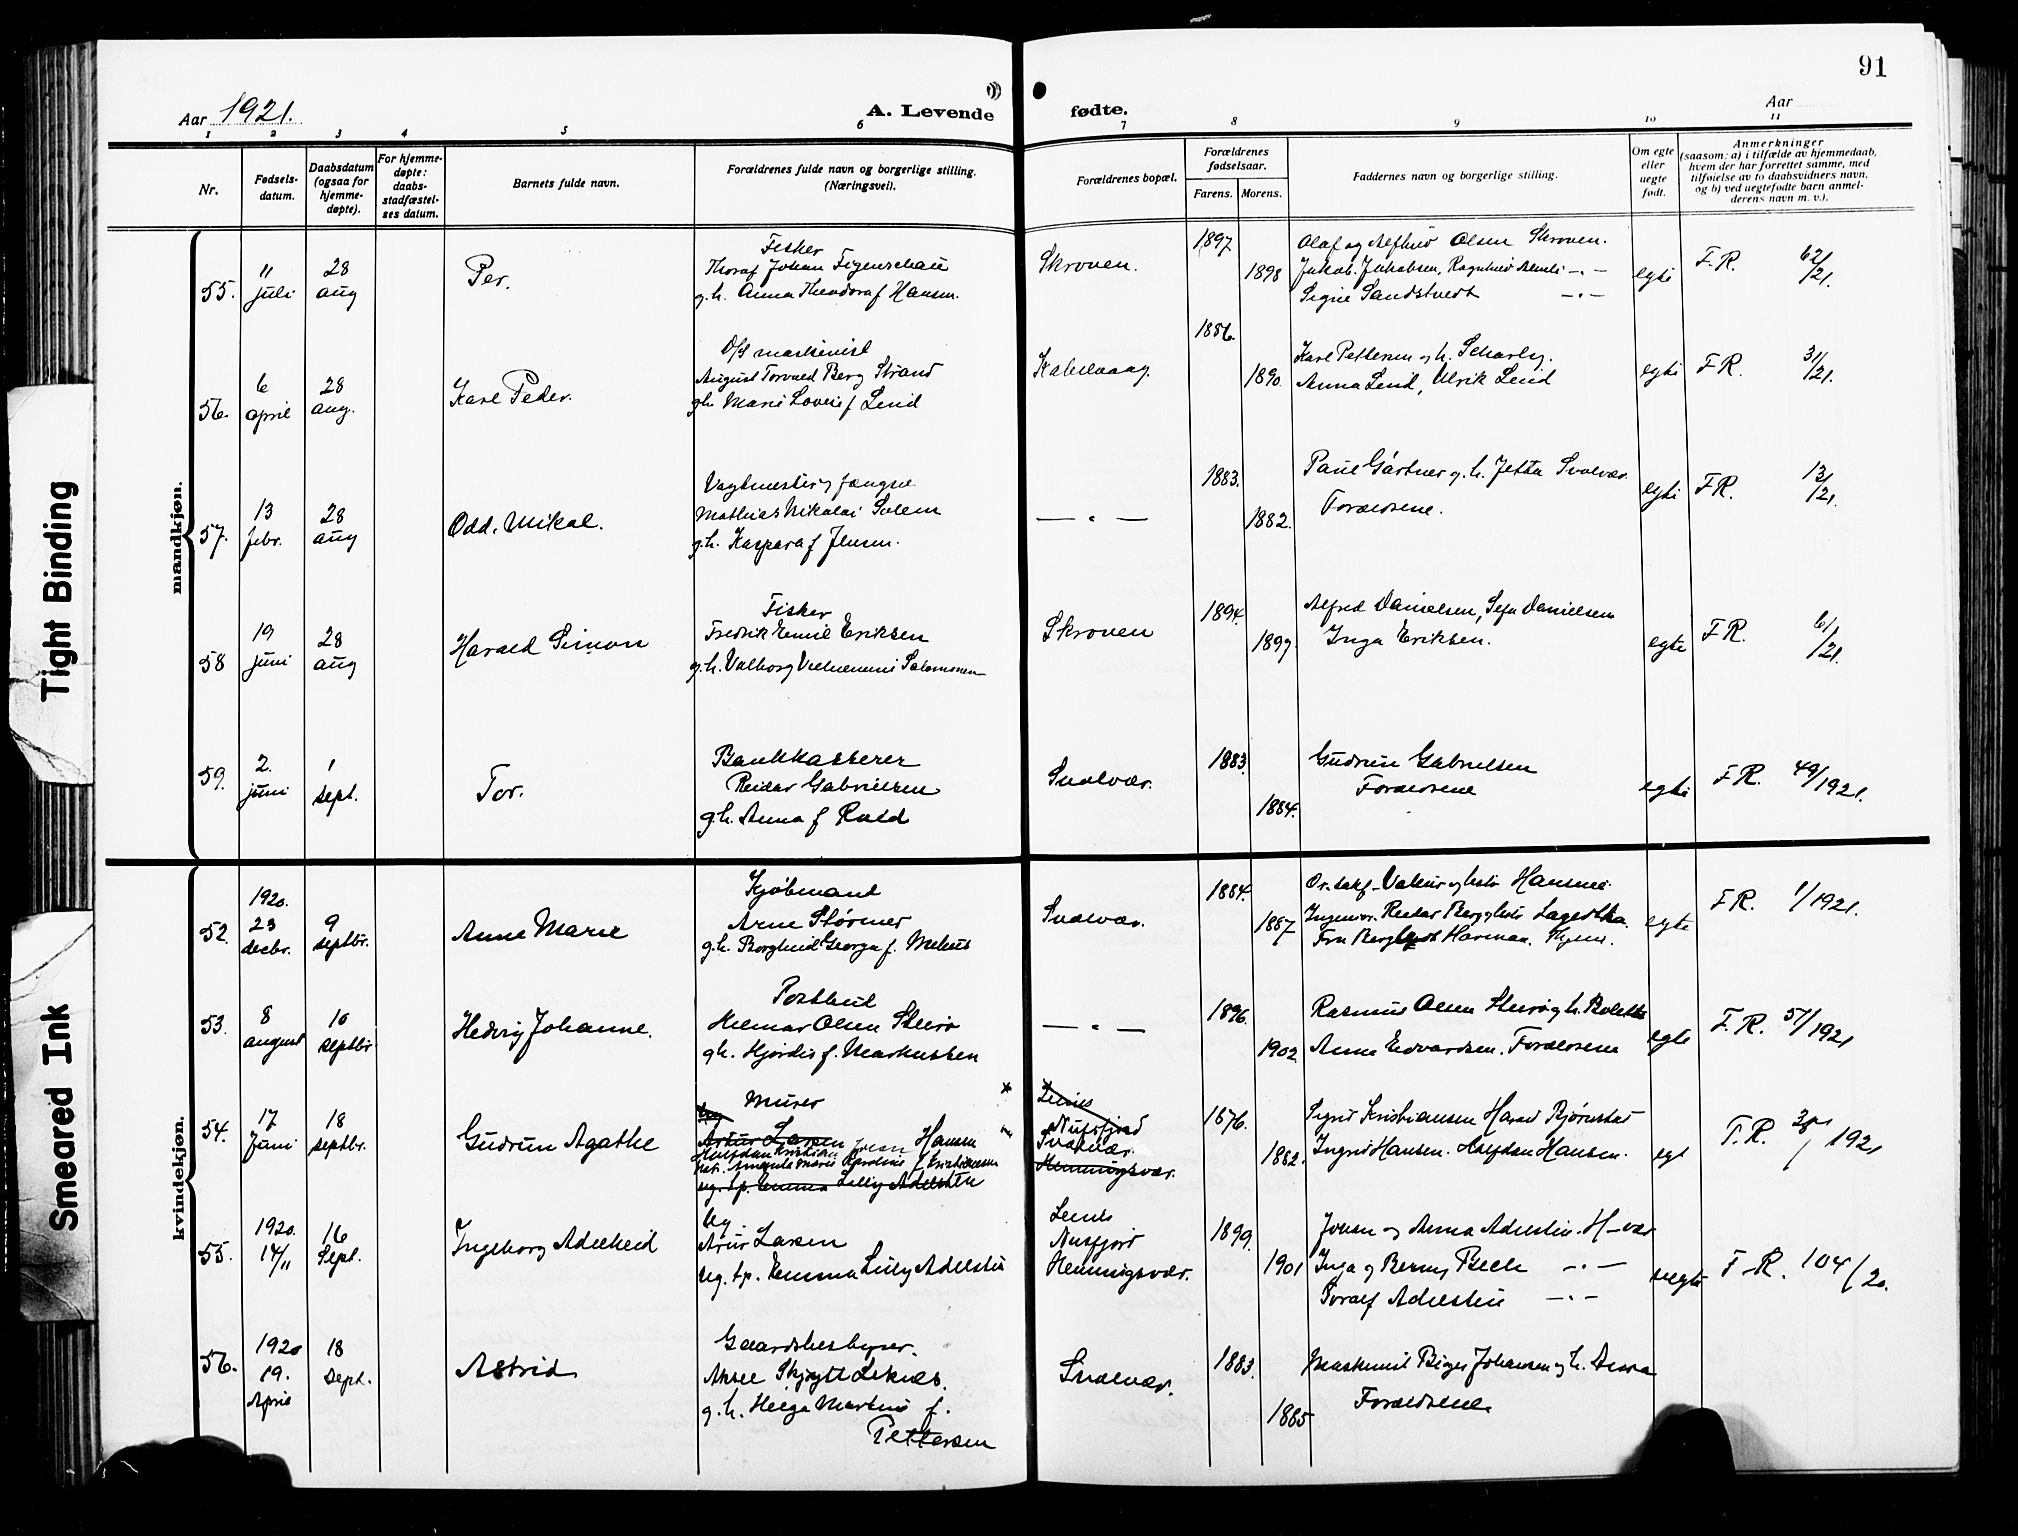 91
Aar 1921.
A. Levende fødte.
Aar
1 2 3 4 5 6 7 8 9 10 11
Nr.
Fødsels-
datum.
Daabsdatum
(ogsaa for
hjemme-
døpte).
For hjemme-
døpte:
daabs-
stadfæstel-
ses datum.
Barnets fulde navn.
Forældrenes fulde navn og borgerlige stilling.
(Næringsvei).
Forældrenes bopæl.
Forældrenes
fødselsaar.
Farens. Morens.
Faddernes navn og borgerlige stilling.
Om egte
eller
uegte
født.
Anmerkninger
(saasom: a) i tilfælde av hjemmedaab,
hvem der har forrettet samme, med
tilføielse av to daabsvidners navn,
og b) ved uegtefødte barn anmel-
derens navn m. v.).
mandkjøn.
55. 11 juli 28 aug Per.
Fisker
Thoraf Johan Figenschau
g.h. Anna Theodora f Hansen.
Skroven. 1897 1898
Olaf og Olsen Skroven.
Jakob Jakobsen, Ragnhild — " —
Signe Sandstvedt — " —
egte F.R. 62/21.
56. 6 april 28 aug. Karl Peder.
maskinist
August Torvald Berg Strand
gh. Marie Lovise f Lund
Kabelvaag. 1886. 1890.
Karl Pettersen og h. Scharby.
Anna Lind, Ulrik Lind
egte F.R. 31/21.
57. 13 febr. 28 aug Odd. Mikal.
Vagtmester fængsel
Mathias Nikolai Solem
g.h. Kaspara f Jensen.
— " — 1883. 1882.
Paul Gärtner g.h. Jetta Svolvær.
Forældrene.
egte F.R. 13/21.
58 19 juni 28 aug Harald Simon
Fisker
Fredrik Emil Eriksen
g.h. Valborg Vilhelmine Salomonsen
Skroven 1894. 1899.
Alfred Danielsen, Danielsen
Inga Eriksen.
egte F.R. 61/21.
59. 2. juni 1 sept. Tor.
Bankkasserer
Reidar Gabrielsen
g.h. Anna f Rold
Svolvær. 1883. 1884.
Gudrun Gabrielsen
Forældrene
egte F.R. 49/1921.
kvindekjøn.
52. 1920. 23 decbr. 9 septbr. Anne Marie
Kjøbmand
Arne Størmer
g.h. Borghild Georga f. Mehus
Svolvær. 1884. 1887
Hansine
Ingeniør Reidar Berg
egte F.R. 1/1921.
53. 8 august 10 septbr Hedvig Johanne.
Postbud
Hilmar Olsen Sterø
gh. Hjørdis f. Markussen
— " — 1896. 1902.
Rasmus Olsen Sterø g h. Bolette
Anna Edvardsen. Forældrene
egte F.R. 51/1921
54. 17 Juni 18 septbr. Gudrun Agathe
Murer
Artur Larsen
Halfdan Kristian Johan Hansen
Amanda Marie Karoline f Kristiansen
ug. tp. Emma Lilly Adelsten
Nusfjord
Svolvær.
Henningsvær.
1876. 1882.
Sigrid Kristiansen Harald Bjørnstad
Ingrid Hansen. Halfdan Hansen.
egt F.R. 1921
55. 1920. 14/11 16 Sept. Ingeborg Adelheid
Ug.
Artur Larsen
Ug. tp. Emma Lilly Adelsten
Nusfjord
Henningsvær.
1899. 1901
Johan og Anna Adelsten. H-vær
Inga og Berny Bech — " —
Toralf Adelsten — " —
uegte F.R. 104/20.
56. 1920 19. April 18 Sept. Astrid
Gaardsbestyrer.
Aksel Skjøytt Leknes.
g.h. Helga Martine f.
Pettersen
Svolvær. 1883. 1885
Maskinist Birger Johansen g h. Anna
Forældrene.
Tight Binding
Smeared Ink